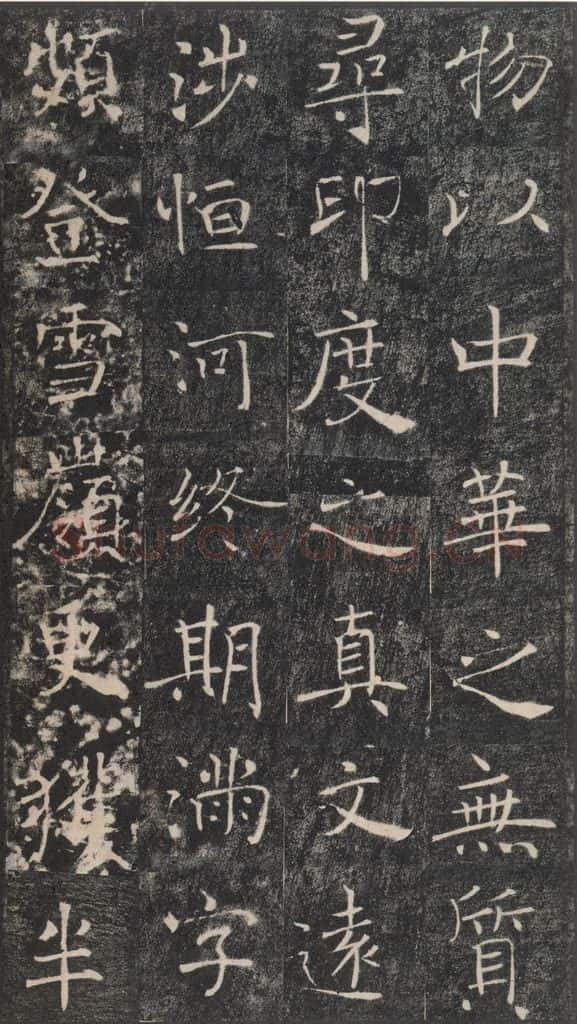 物以中華之無質
尋印度之真文遠
涉恒河終期滿字
頻登雪嶺更獲半
Shufawang.CN